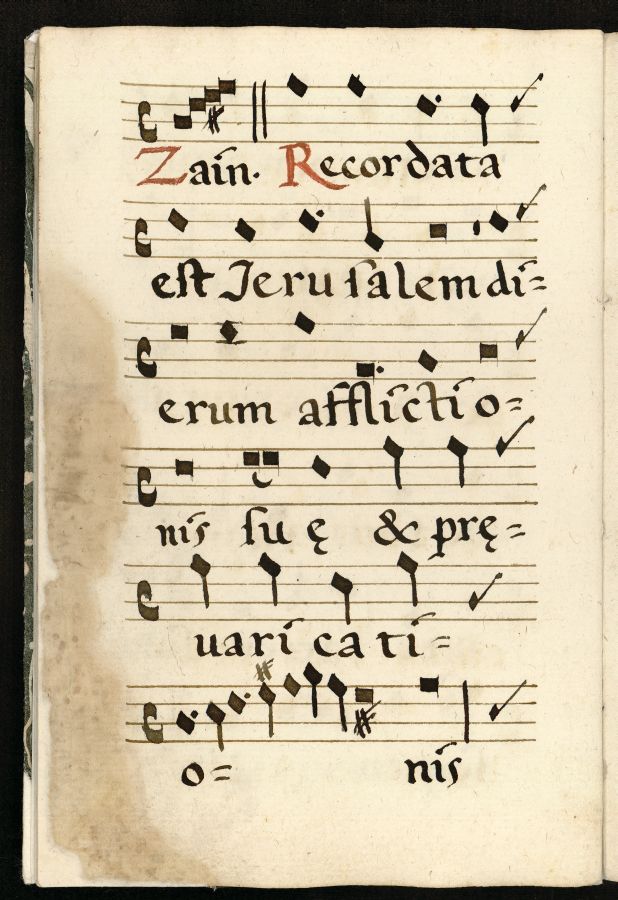 Zain. Recordata
est Jeru salem di=
erum afflicti o=
nis su ę & prę=
uari ca ti=
o= nis